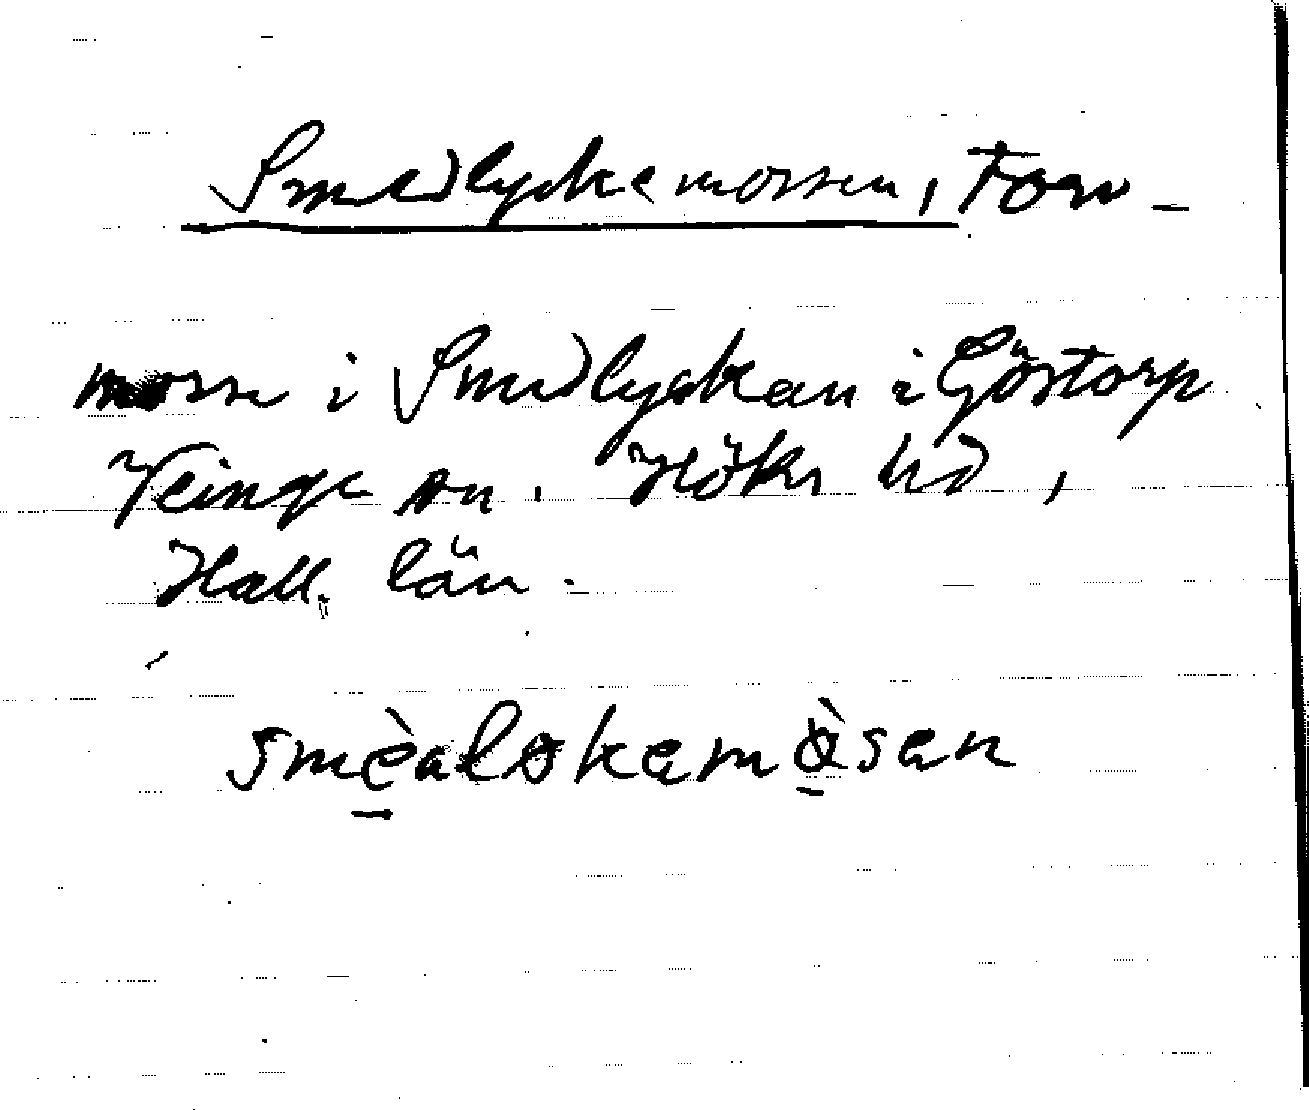 Smedlyckemossen, Torv-
mosse i Smedlyckan i Göstorp
Veinge sn. Höks hd,
Hall. län.
smèaløkemòsen